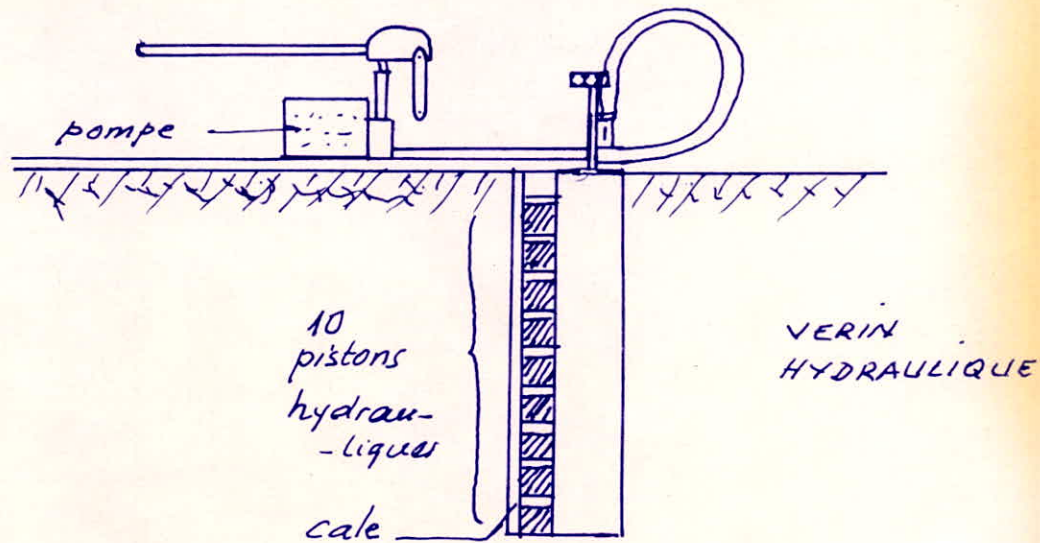 pompe
10
pistons
hydrau-
-liques
cale
VERIN
HYDRAULIQUE